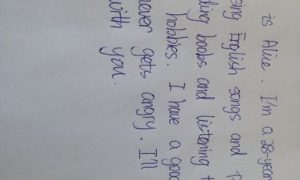 is Alice. I'm a 28-year
English songs and
ding books and listening t
hobbies. I have a good
never gets angry. I'll
with you.